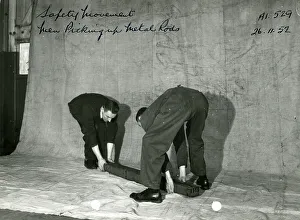 Safety Movement
Men Picking up Metal Rods
A1.529
26.11.52